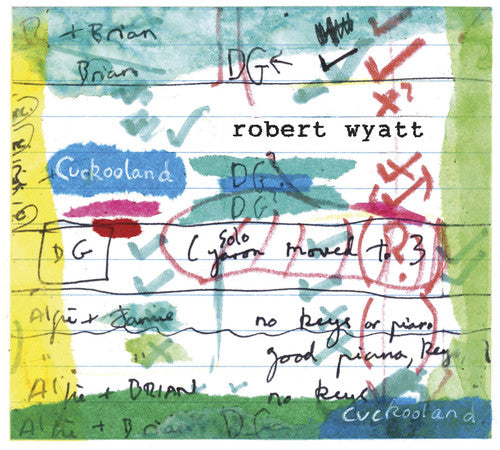 + Brian
Brian DG ← ✓
x?
robert wyatt
Cuckooland DG?
DG?
4
DG (solo yaron moved to 3
?
Alfie + Jamie no keys or piano
" " good piano, key
Alfie + BRIAN no keys
cuckooland
Alfie + Bri DG